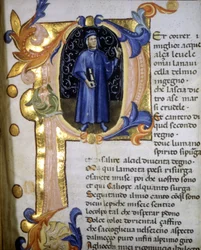 Er correr
miglior acque
alça leuele
omai lanaui
cella delmio
ingegno
che lascia die
tro ase mar
si crudele
Et cantero di
quel secondo
regno
doue lumano
spirito sipurga
salire alciel diuenta degno
lamorta poesi risurga
o sancte muse poi che uostro sono
et qui Caliope alquanto surga
Seguitando ilmio canto
di cui lepiche misere
lo colpo tal che disperar perdono
Dolce color doriental çaffiro
che saccoglieua nelsereno aspecto
dalmeço puro infin alprimo giro